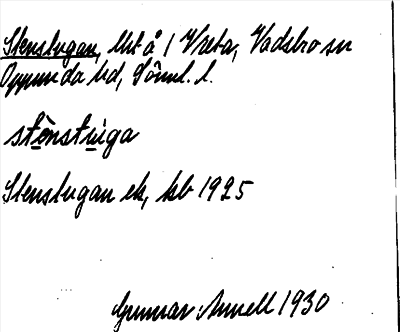 Stenstugan, lht å 1 Vreta, Vadsbro sn
Oppunda hd, Söml. l.
stènstùga
Stenstugan ek, kb 1925
Gunnar Annell 1930